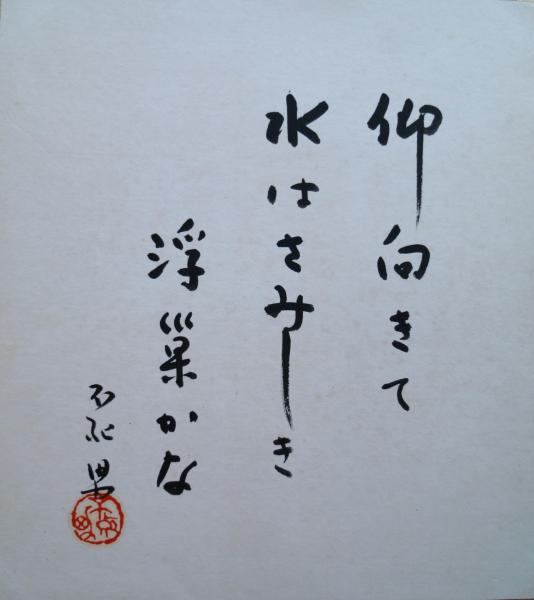 仰向きて
水はさみしき
浮巣かな
不死男